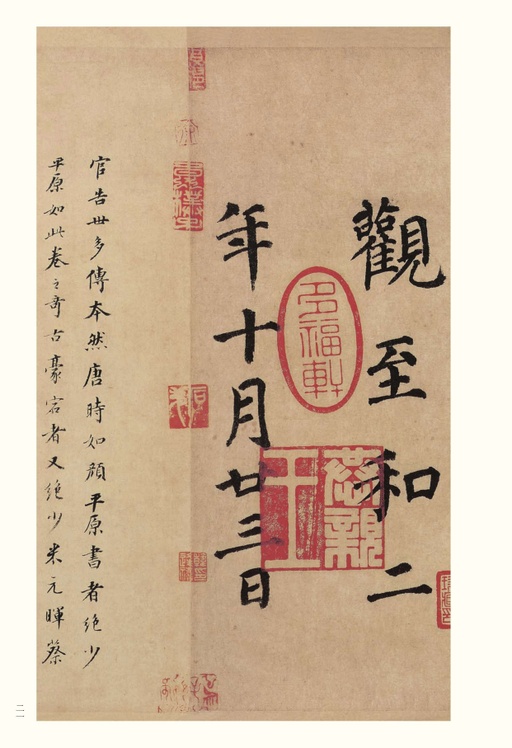 觀至和二
年十月廿三日
多福軒
恭親王
官告世多傳本然唐時如顏平原書者絕少
平原如此卷之奇古豪宕者又絕少米元暉蔡